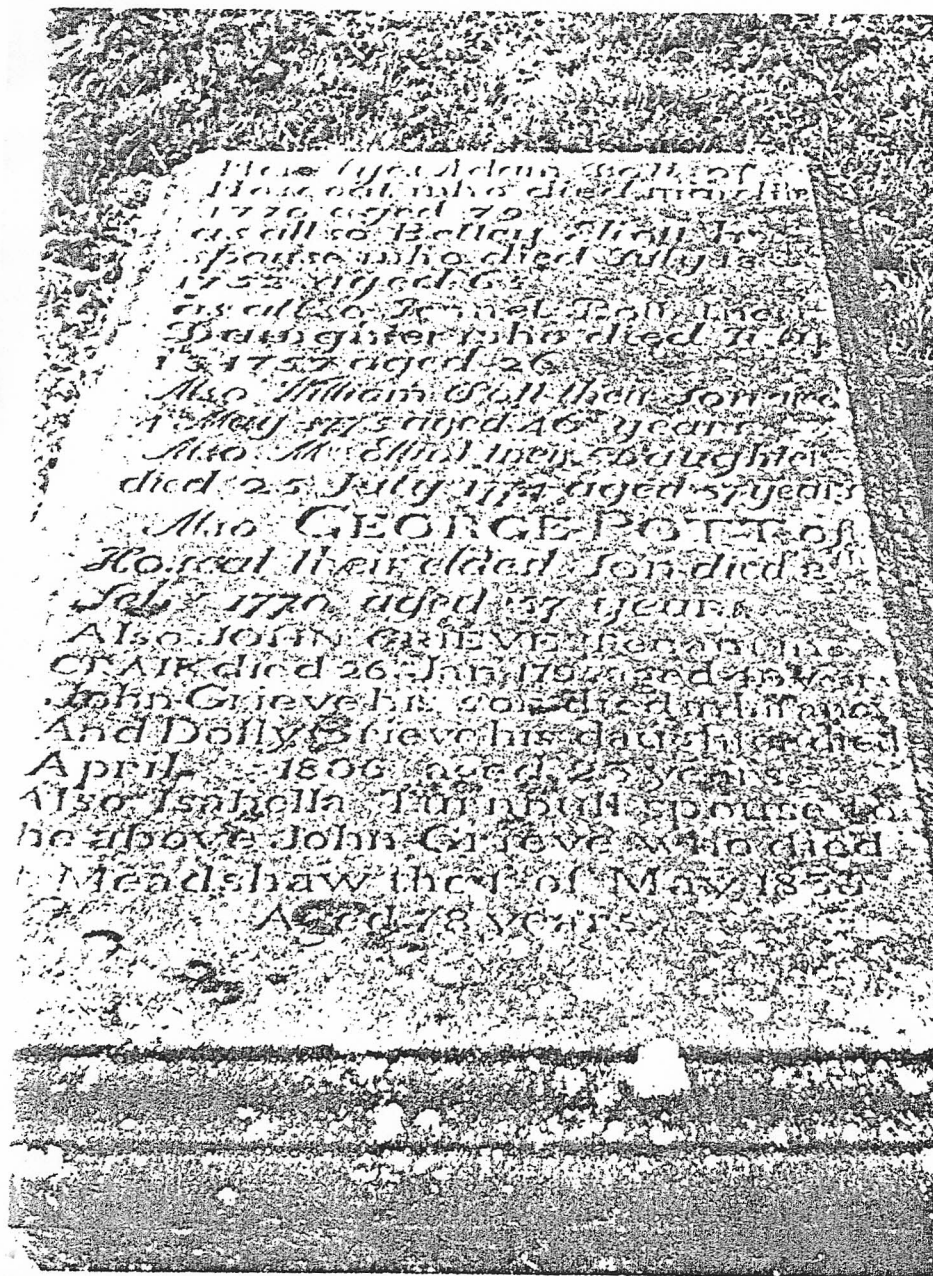 Here lyes Adam Pott of
Howpat who died
1770 aged 70
as allso Bettey Eliott his
spouse who died July 18
1752 aged 63
as allso Pott their
Daughter who died
1757 aged 26
Also William Pott their Son died
May 1773 aged 46 years
Also Mrs Elliot their Daughter
died 25 July 1774 aged 57 years
Also GEORGE POTT of
their eldest Son died
Feby 1770 aged 57 years
Also JOHN GRIEVE Tenant in
CRAIK died 26 Jan 179 aged years
John Grieve his son died in Infancy
And Dolly Grieve his daughter died
April 1806 aged 25 years
Also Isabella Turnbull spouse to
he above John Grieve who died
Meadshaw the of May 183
Aged 78 years